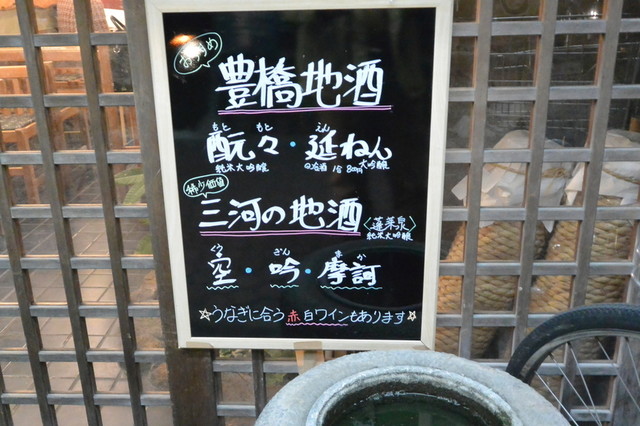 お勧め
豊橋地酒
もと もと えん
酛々・延ねん
純米大吟醸 大吟醸
稀少価値
三河の地酒
〈蓬莱泉〉
純米大吟醸
くう ぎん まか
空・吟・摩訶
☆うなぎに合う赤白ワインもあります☆